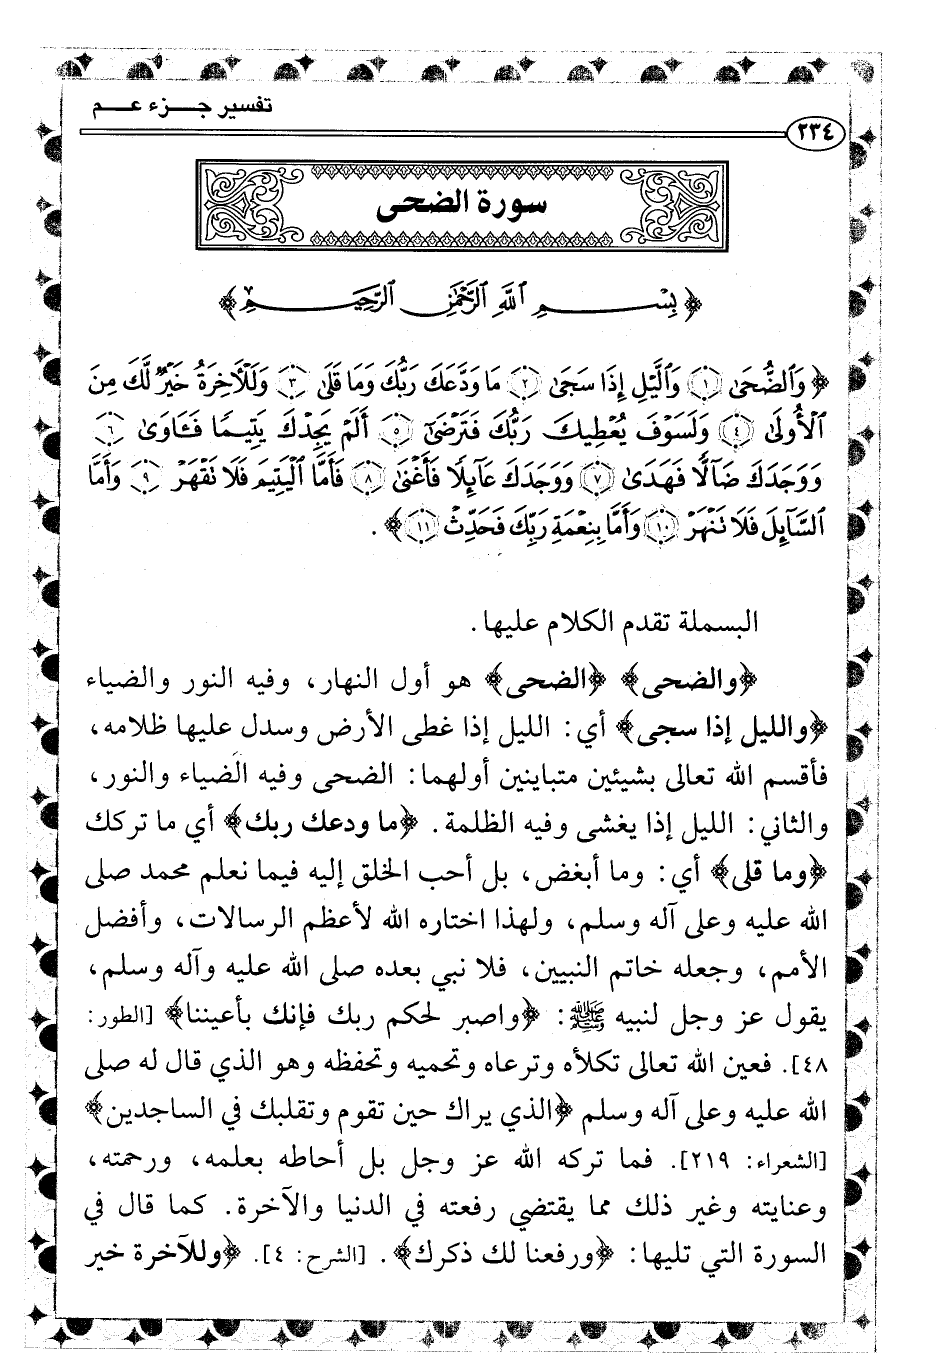 تفسير جزء عم
٢٣٤
سورة الضحى
﴿ بِسْمِ ٱللَّهِ ٱلرَّحْمَٰنِ ٱلرَّحِيمِ ﴾
﴿ وَٱلضُّحَىٰ ١ وَٱلَّيْلِ إِذَا سَجَىٰ ٢ مَا وَدَّعَكَ رَبُّكَ وَمَا قَلَىٰ ٣ وَلَلْأَخِرَةُ خَيْرٌ لَّكَ مِنَ
ٱلْأُولَىٰ ٤ وَلَسَوْفَ يُعْطِيكَ رَبُّكَ فَتَرْضَىٰٓ ٥ أَلَمْ يَجِدْكَ يَتِيمًا فَـَٔاوَىٰ ٦
وَوَجَدَكَ ضَآلًّا فَهَدَىٰ ٧ وَوَجَدَكَ عَآئِلًا فَأَغْنَىٰ ٨ فَأَمَّا ٱلْيَتِيمَ فَلَا تَقْهَرْ ٩ وَأَمَّا
ٱلسَّآئِلَ فَلَا تَنْهَرْ ١٠ وَأَمَّا بِنِعْمَةِ رَبِّكَ فَحَدِّثْ ١١ ﴾ .
البسملة تقدم الكلام عليها.
﴿والضحى﴾ ﴿الضحى﴾ هو أول النهار، وفيه النور والضياء
﴿والليل إذا سجى﴾ أي: الليل إذا غطى الأرض وسدل عليها ظلامه،
فأقسم الله تعالى بشيئين متباينين أولهما: الضحى وفيه الضياء والنور،
والثاني: الليل إذا يغشى وفيه الظلمة. ﴿ما ودعك ربك﴾ أي ما تركك
﴿وما قلى﴾ أي: وما أبغض، بل أحب الخلق إليه فيما نعلم محمد صلى
الله عليه وعلى آله وسلم، ولهذا اختاره الله لأعظم الرسالات، وأفضل
الأمم، وجعله خاتم النبيين، فلا نبي بعده صلى الله عليه وآله وسلم،
يقول عز وجل لنبيه ﷺ: ﴿واصبر لحكم ربك فإنك بأعيننا﴾ [الطور:
٤٨]. فعين الله تعالى تكلأه وترعاه وتحميه وتحفظه وهو الذي قال له صلى
الله عليه وعلى آله وسلم ﴿الذي يراك حين تقوم وتقلبك في الساجدين﴾
[الشعراء: ٢١٩]. فما تركه الله عز وجل بل أحاطه بعلمه، ورحمته،
وعنايته وغير ذلك مما يقتضي رفعته في الدنيا والآخرة. كما قال في
السورة التي تليها: ﴿ورفعنا لك ذكرك﴾ . [الشرح: ٤]. ﴿وللآخرة خير